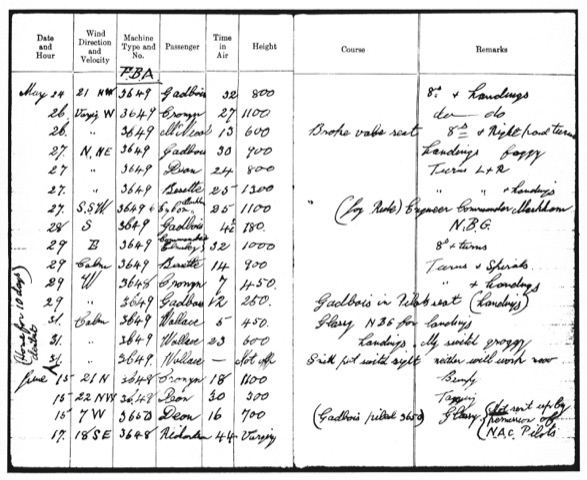 Date and Hour Wind Direction and Velocity Machine Type and No. Passenger Time in Air Height Course Remarks
F.B.A.
May 24 21 NW 3649 Gadbois 32 800 8s + Landings
26. W 3649 Cronyn 27 1100 do — do
26. " 3649 13 600 Broke valve seat 8s + Right hand turns
27. N.NE 3649 Gadbois 30 900 Landings foggy
27 " 3649 Deon 24 800 Turns L+R
27. " 3649 Besette 25 1300 " " + Landings
27. S.SW 3649 25 1100 (Joy Ride) Engineer Commander
28 S 3649 Gadbois 180. N.B.G.
29 3649 32 1000 8s + turns
29 Calm 3649 Besette 14 900 Turns + Spirals.
29 W 3648 Cronyn 7 450. " + Landings
29 " 3649 Gadbois 12 250. Gadbois in Pilots seat (Landings)
31. Calm 3649 Wallace 5 450. Glassy N.B.G for Landings
31. " 3649 Wallace 23 600 Landings. My switch groggy
31. " 3649. Wallace — Not up Sick put switch right neither will work now
(Home for 10 days)
June 15 21 N 3648 Cronyn 18 1100 Bumpy
15 22 NW 3648 Deon 30 300
15 7 W 3650 Deon 16 700 (Gadbois piloted 3650) Glassy (Not sent up by permission of N.A.C. Pilots
17. 18 SE 3648 44 Varying